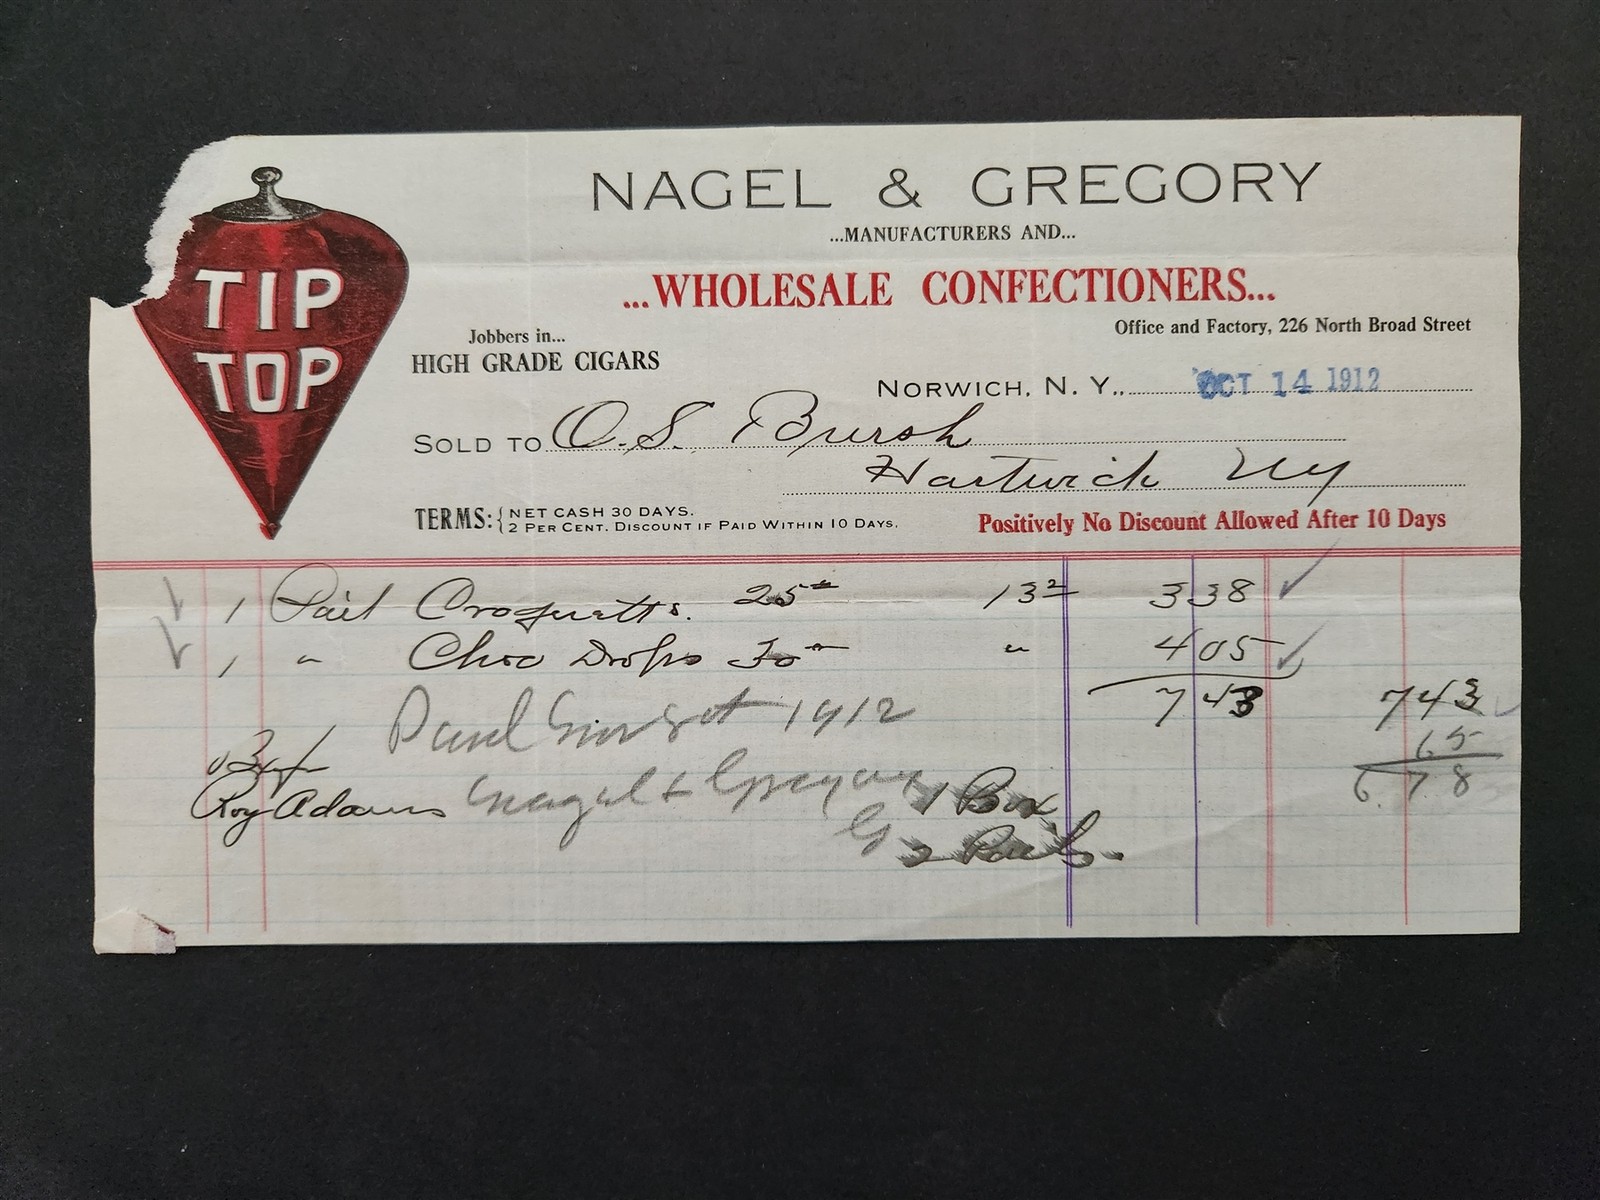 TIP
TOP
NAGEL & GREGORY
...MANUFACTURERS AND...
...WHOLESALE CONFECTIONERS...
Office and Factory, 226 North Broad Street
Jobbers in...
HIGH GRADE CIGARS
NORWICH, N. Y., OCT 14 1912
SOLD TO O. S. Bursh
Hartwick NY
TERMS: { NET CASH 30 DAYS.
2 PER CENT. DISCOUNT IF PAID WITHIN 10 DAYS.
Positively No Discount Allowed After 10 Days
1 Pail Croquetts. 25# 13½ 3 38
1 " Choc Drops 30# " 4 05
7 43 7 43
Paid 1912
65
6.78
Nagel & Gregory
Roy Adams
1 Box
2 Pails.